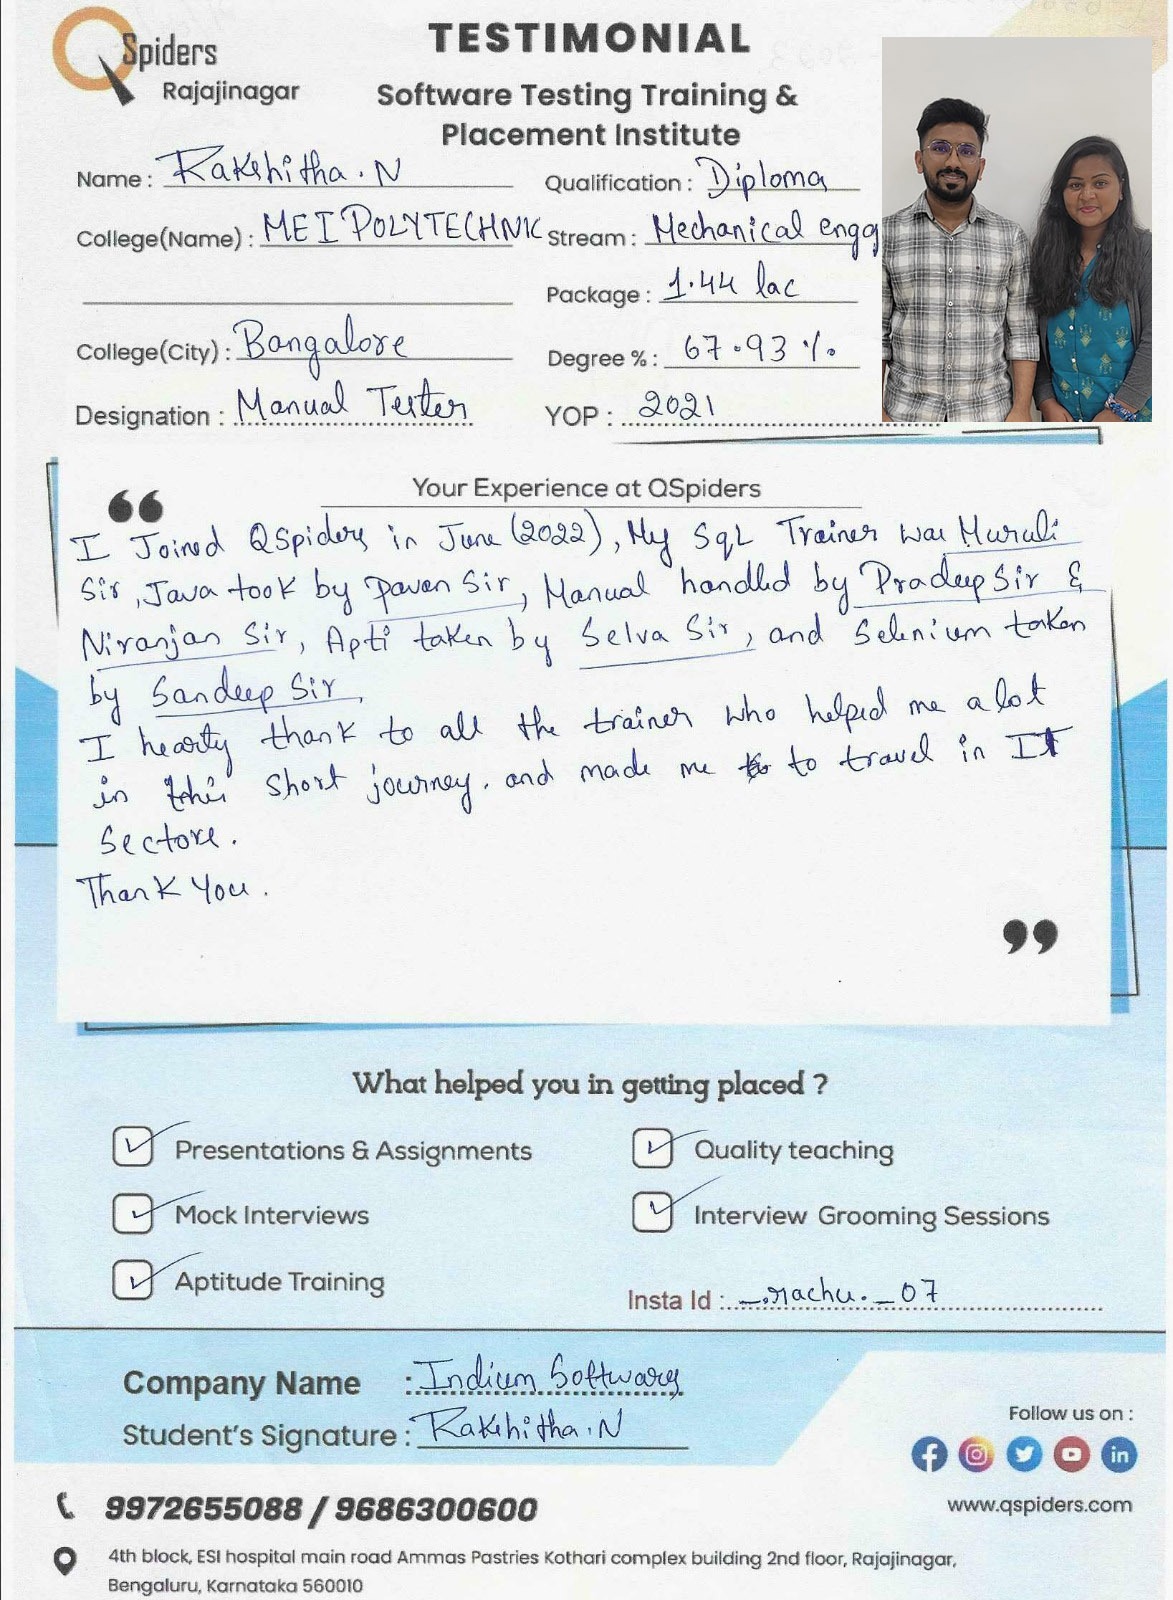 QSpiders
Rajajinagar
TESTIMONIAL
Software Testing Training &
Placement Institute
Name : Rakshitha . N
Qualification : Diploma
College(Name) : MEI POLYTECHNIC
Stream : Mechanical engg
Package : 1.44 lac
College(City) : Bangalore
Degree % : 67.93 %.
Designation : Manual Tester
YOP : 2021
Your Experience at QSpiders
“
I Joined QSpiders in June (2022), My SqL Trainer was Murali
Sir, Java took by pavan Sir, Manual handled by Pradeep Sir &
Niranjan Sir, Apti taken by Selva Sir, and Selenium taken
by Sandeep Sir,
I hearty thank to all the trainer who helped me a lot
in this short journey. and made me to travel in IT
Sectore.
Thank You.
”
What helped you in getting placed ?
Presentations & Assignments
Quality teaching
Mock Interviews
Interview Grooming Sessions
Aptitude Training
Insta Id : _.rachu._07
Company Name : Indium Software
Student's Signature : Rakshitha.N
Follow us on :
9972655088 / 9686300600
www.qspiders.com
4th block, ESI hospital main road Ammas Pastries Kothari complex building 2nd floor, Rajajinagar,
Bengaluru, Karnataka 560010